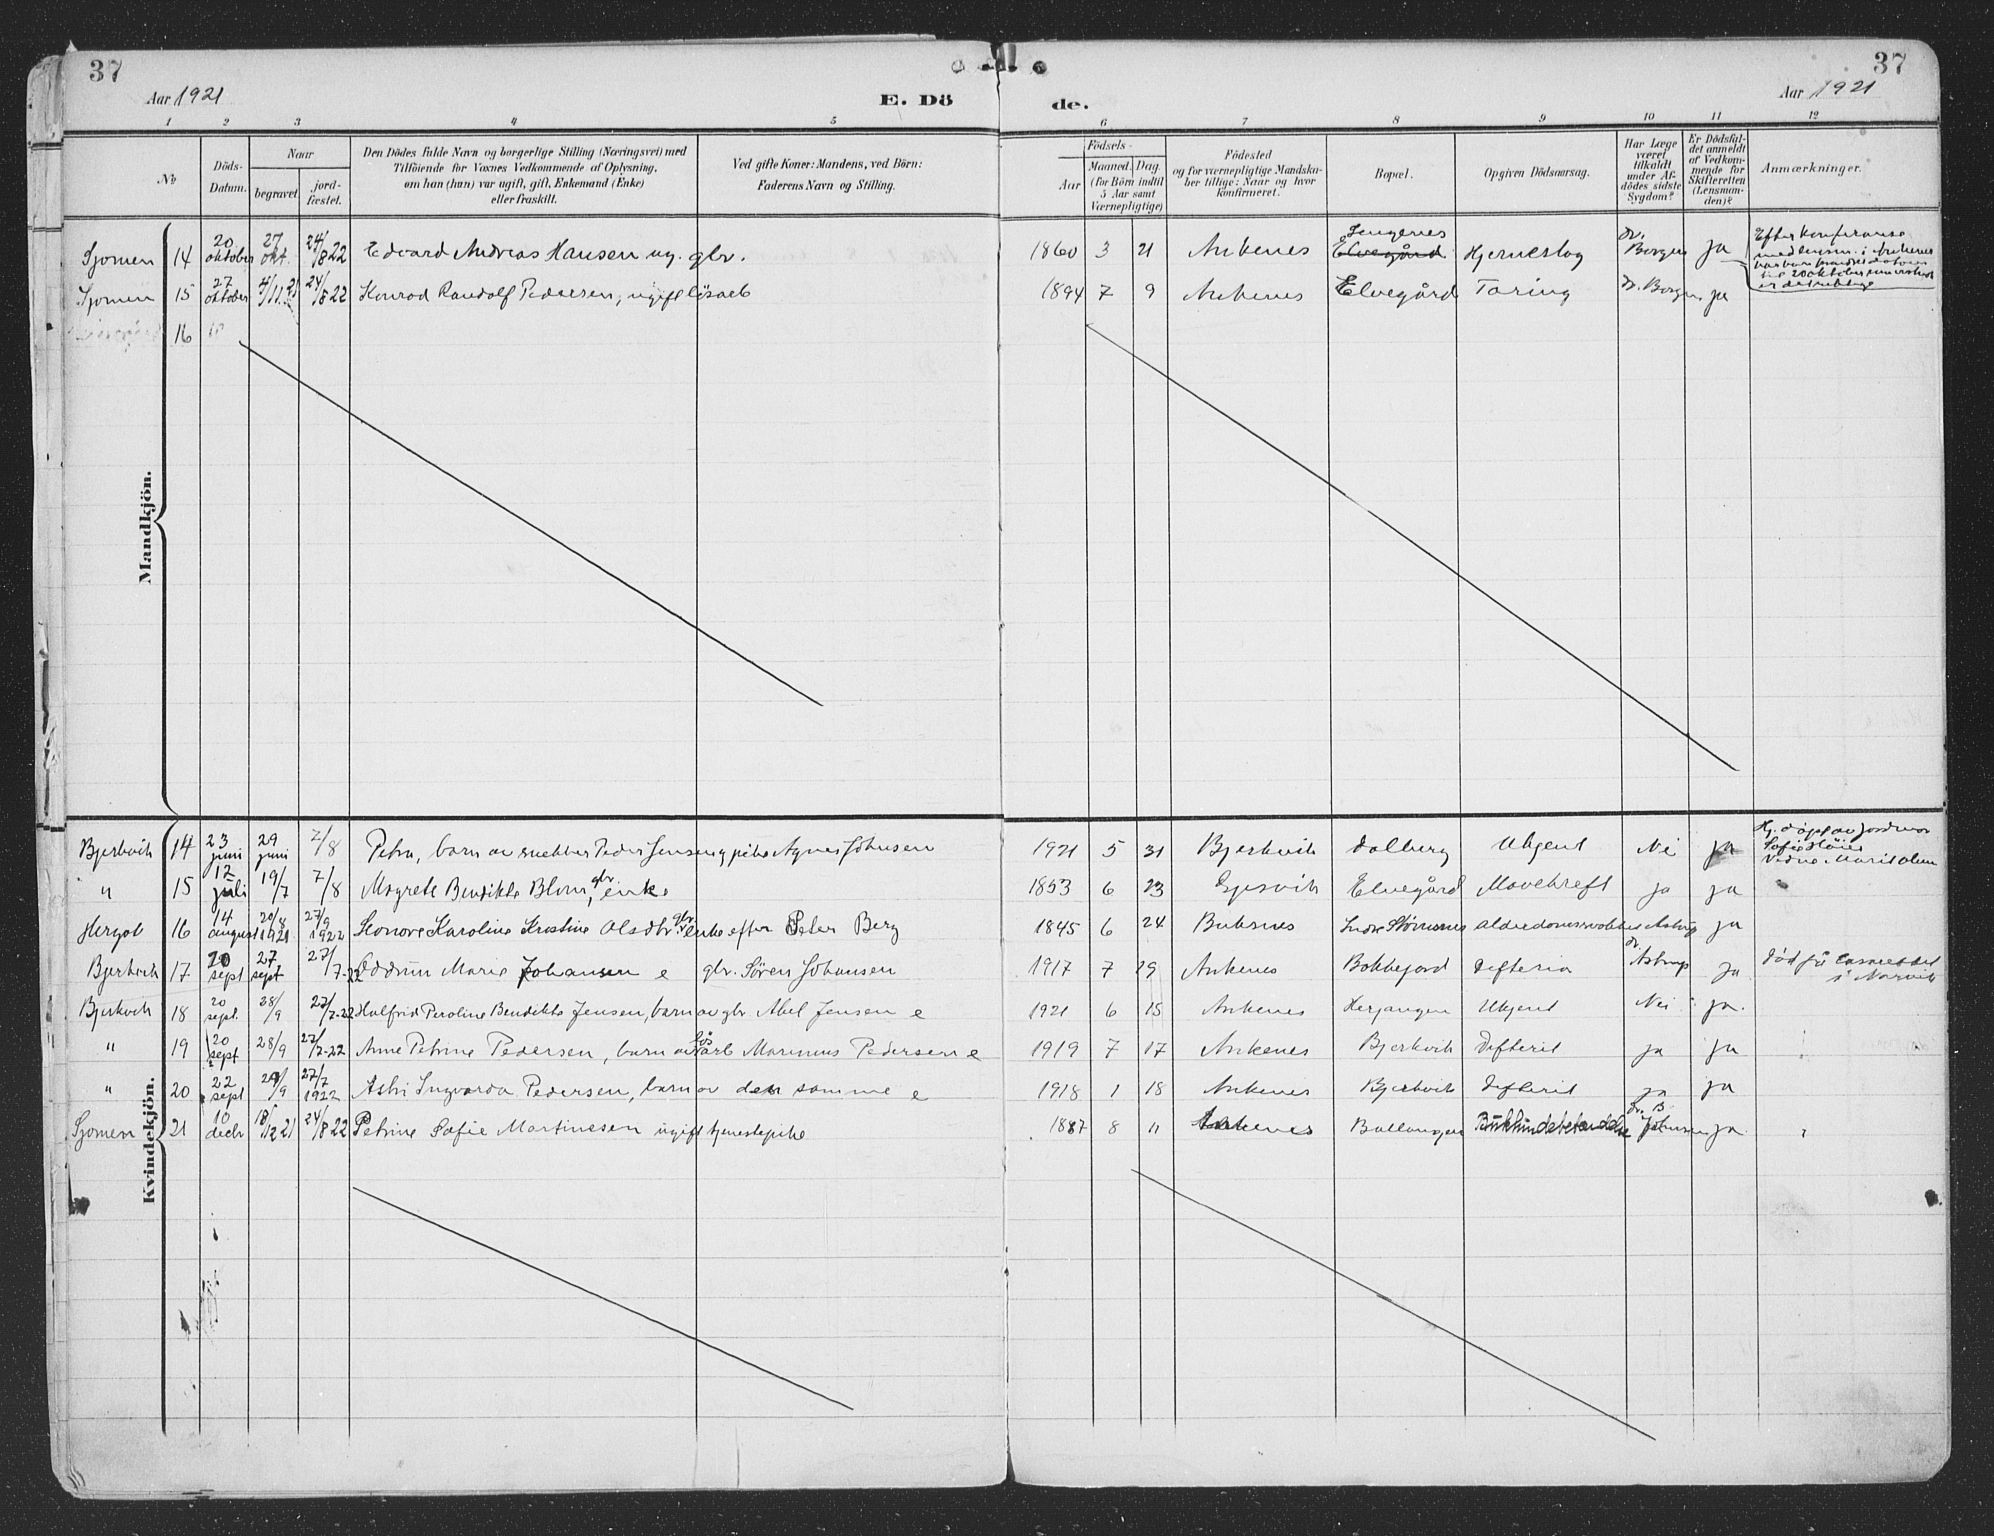 37
Aar 1921
E. Dö
de.
37
Aar 1921
1 2 3 4 5 6 7 8 9 10 11 12
No
Döds-Datum.
Naar
begravet.
jord-fæstet.
Den Dödes fulde Navn og borgerlige Stilling (Næringsvei) med
Tilföiende for Voxnes Vedkommende af Oplysning,
om han (hun) var ugift, gift, Enkemand (Enke)
eller fraskilt.
Ved gifte Koner: Mandens, ved Börn:
Faderens Navn og Stilling.
Födsels-
Aar
Maaned. Dag.
(for Börn indtil
5 Aar samt
Værnepligtige)
Födested
og for værnepligtige Mandska-
ber tillige: Naar og hvor
konfirmeret.
Bopæl.
Opgiven Dödsaarsag.
Har Læge
været
tilkaldt
under Af-
dödes sidste
Sygdom?
Er Dödsfal-
det anmeldt
af Vedkom-
mende for
Skifteretten
(Lensman-
den)?
Anmærkninger.
Mandkjön.
Sjomen 14 20 oktober 27 okt. 24/8 22 Edvard Andreas Hansen ug. gbr. 1860 3 21 Ankenes Elvegård Hjerneslag dr. Borgen ja Efter konferanse
Sjomen 15 27 oktober 4/11 21 24/8 22 Konrad Randolf Pedersen, ugift løsarb 1894 7 9 Ankenes Elvegård Tæring dr. Borgen ja
16
Kvindekjön.
Bjerkvik 14 23 juni 29 juni 7/8 Petra, barn av snekker Peder Jensen og pike Agnes Johnsen 1921 5 31 Bjerkvik Dalberg Ukjent Nei ja Hj. døpt av jordmor
" 15 12 juli 19/7 7/8 Margrete Bendikte Blom, gbr enke 1853 6 23 Elvegård Mavekreft ja ja
Hergot 16 14 august 20/8 1921 27/9 1922 Karoline Kristine Olsdtr gbr enke efter Peter Berg 1845 6 24 Buksnes Astrup ja
Bjerkvik 17 20 sept 27 sept 27/7-22 Oddrun Marie Johansen e gbr. Sören Johansen 1917 7 29 Ankenes Difteria dr. Astrup ja død på i Narvik
Bjerkvik 18 20 sept. 28/9 27/7-22 Halfrid Peroline Bendikte Jensen, barn av gbr Abel Jensen e 1921 6 15 Ankenes Herjangen Ukjent Nei ja.
" 19 20 sept 28/9 27/7-22 Anne Petrine Pedersen, barn av løsarb Marinius Pedersen e 1919 7 17 Ankenes Bjerkvik Difterit ja ja
" 20 22 sept 28/9 27/7 1922 Astri Ingvarda Pedersen, barn av den samme e 1918 1 18 Ankenes Bjerkvik Difterit ja ja
Sjomen 21 10 decbr 18/12 21 24/8 22 Petrine Sofie Martinesen ugift tjenestepike 1887 8 11 Ankenes Ballangen Bukhindebetændelse dr. B. Johnsen ja